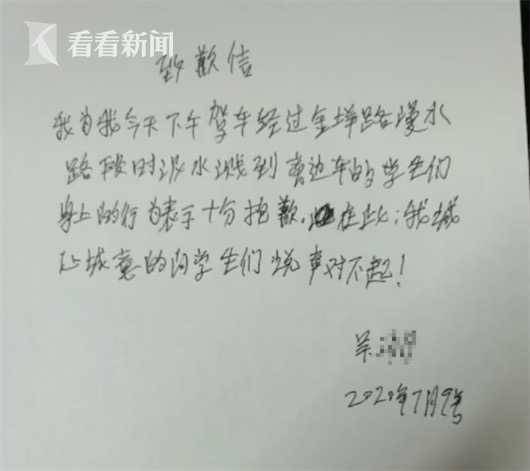 看看新闻
致歉信
我为我今天下午驾车经过金坪路漫水
路段时没水溅到旁边车的学生们
身上的行为表示十分抱歉.在此:我诚
心诚意的向学生们说声对不起!
吴
2020年7月9号